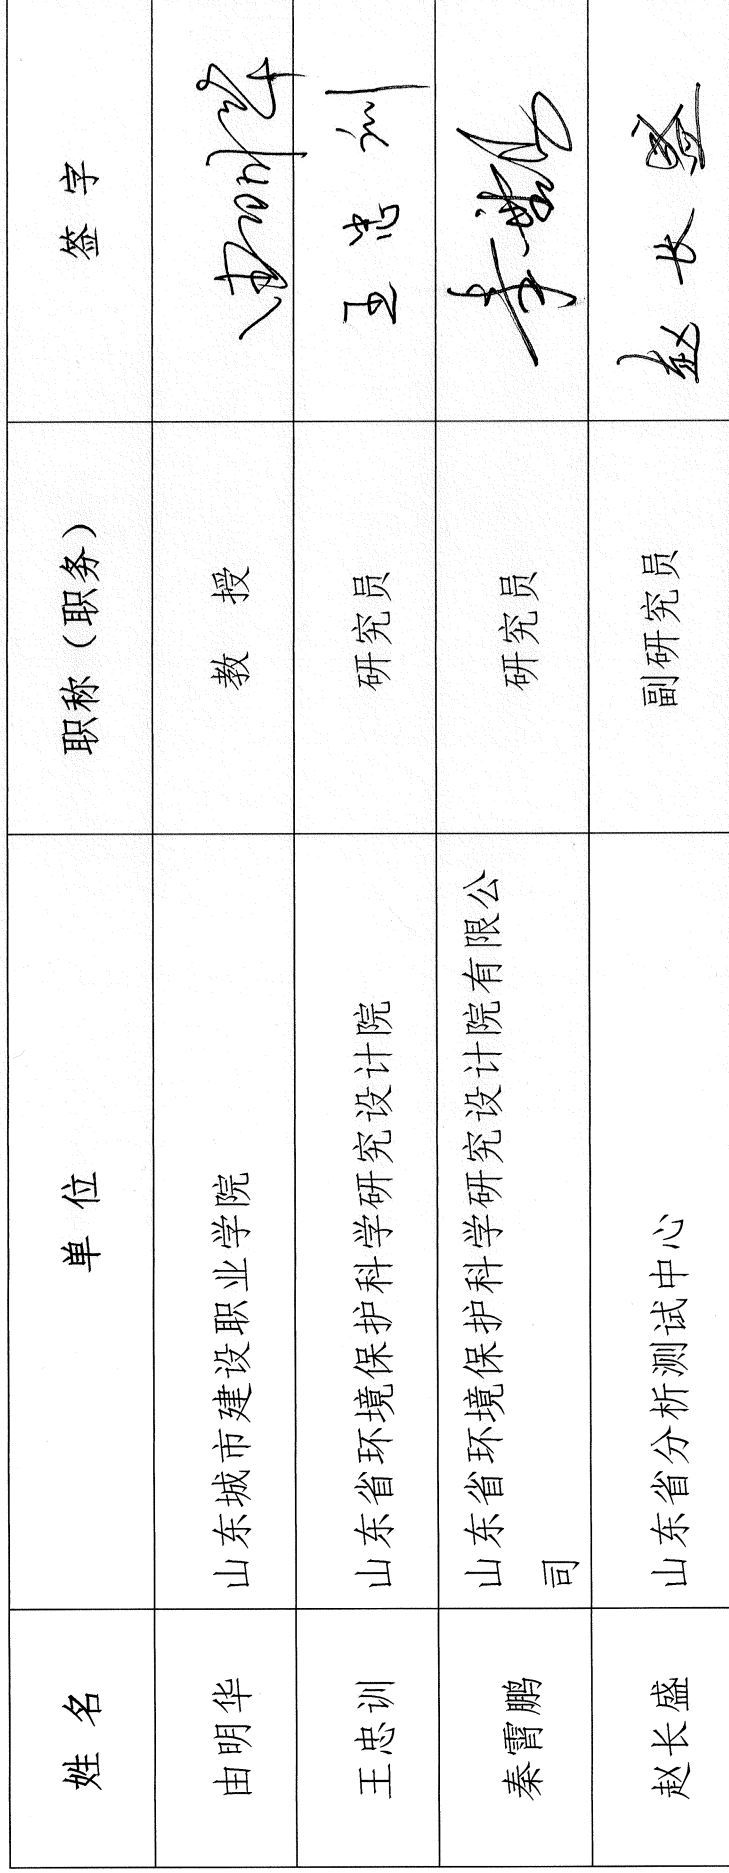 姓 名 单 位 职称（职务） 签 字
由明华 山东城市建设职业学院 教 授 由明华
王忠训 山东省环境保护科学研究设计院 研究员 王忠训
秦霄鹏 山东省环境保护科学研究设计院有限公
司 研究员
赵长盛 山东省分析测试中心 副研究员 赵长盛